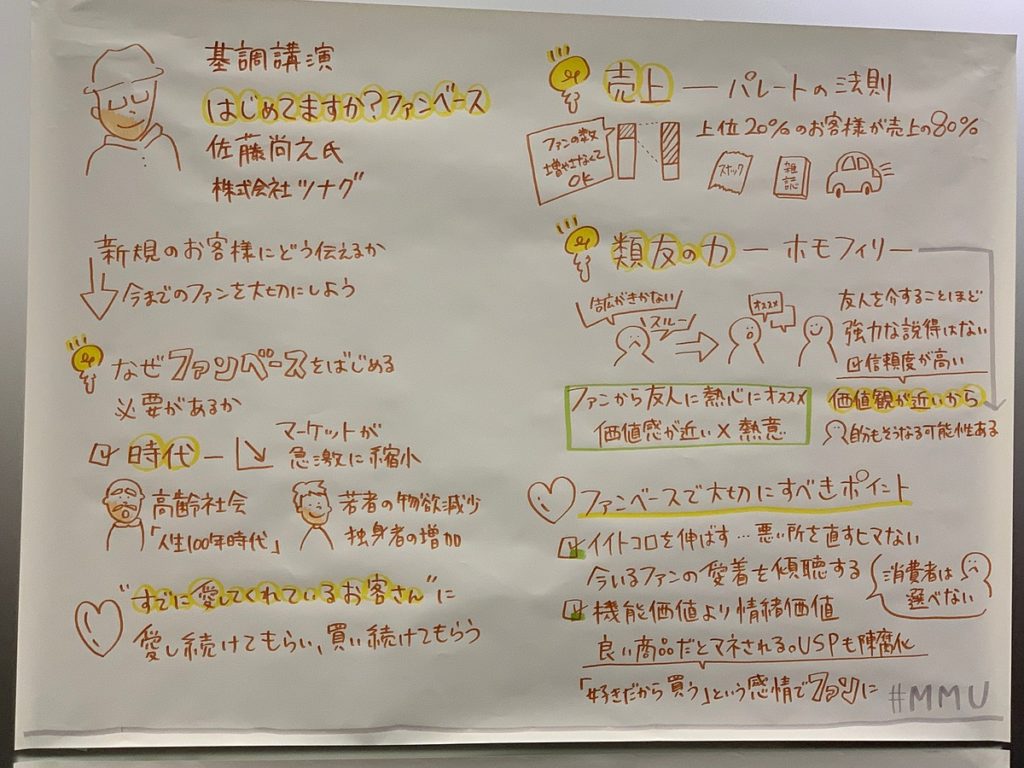 基調講演
はじめてますか?ファンベース
佐藤尚之氏
株式会社ツナグ
新規のお客様にどう伝えるか
今までのファンを大切にしよう
なぜファンベースをはじめる
必要があるか
時代 ー マーケットが
急激に縮小
高齢社会
「人生100年時代」
若者の物欲減少
独身者の増加
"すでに愛してくれているお客さん"に
愛し続けてもらい、買い続けてもらう
売上 ー パレートの法則
ファンの数
増やさなくて
OK
上位20%のお客様が売上の80%
スナック
雑誌
類友の力 ー ホモフィリー
広告がきかない
スルー
オススメ
友人を介することほど
強力な説得はない
信頼度が高い
価値観が近いから
自分もそうなる可能性ある
ファンから友人に熱心にオススメ
価値感が近い×熱意
ファンベースで大切にすべきポイント
イイトコロを伸ばす…悪い所を直すヒマない
今いるファンの愛着を傾聴する
消費者は
選べない
機能価値より情緒価値
良い商品だとマネされる。USPも陳腐化
「好きだから買う」という感情でファンに
#MMU